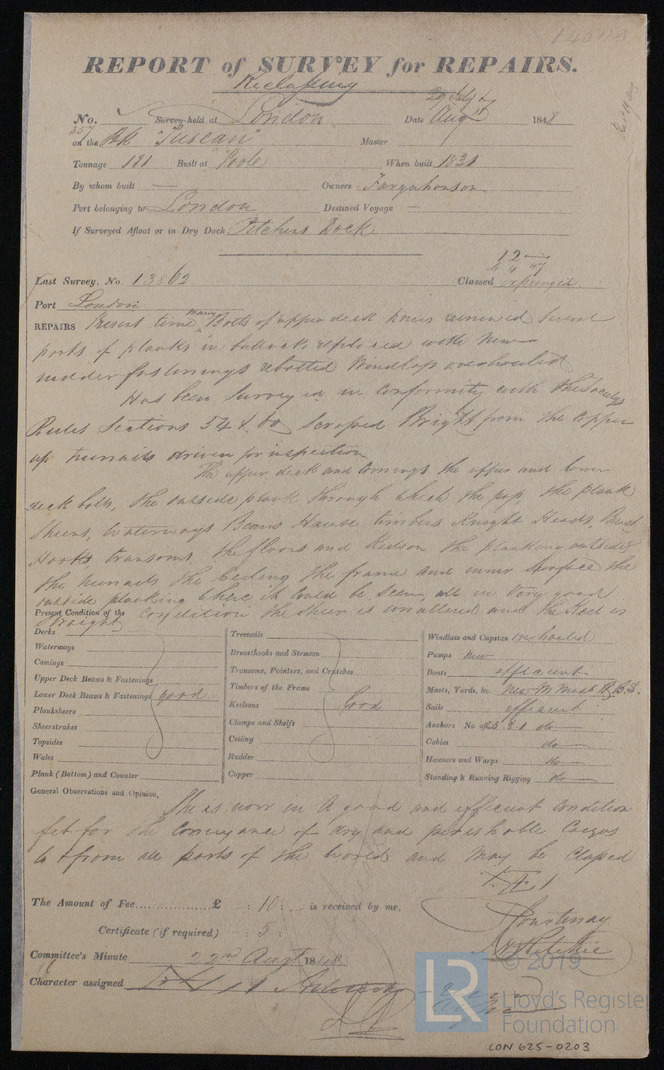 REPORT of SURVEY for REPAIRS.
Reclassing
No. Survey held at London Date 29 July & Aug 17 1848
357 on the Bk "Tuscan" Master
Tonnage 181 Built at Poole When built 1831
By whom built — Owners Farquharson
Port belonging to London Destined Voyage —
If Surveyed Afloat or in Dry Dock Pitchers Dock
12
Last Survey, No. 13862 Classed expunged
Port London
REPAIRS Present time, many Bolts of upper deck knees renewed Several
parts of planks in bulwarks replaced with New
rudder fastenings rebolted Windlass overhauled
Has been Surveyed in Conformity with the Society's
Rules Sections 54 & 60 Scraped Bright from the Copper
up treenails driven for inspection
The upper deck and Comings the upper and lower
deck bolts, the outside plank through which they pass, the plank
Sheers, Waterways Beams Hawse timbers Knight Heads, Breast
Hooks transoms, the floors and Keelson the planking outside
the treenails the Ceiling the frame and inner surface of the
outside planking where it could be seen, all in very good
Condition the sheer is unaltered and the Keel is
straight
Present Condition of the
Decks
Waterways
Comings
Upper Deck Beams & Fastenings
Lower Deck Beams & Fastenings Good
Planksheers
Sheerstrakes
Topsides
Wales
Plank (Bottom) and Counter
Treenails
Breasthooks and Stemson
Transoms, Pointers, and Crutches
Timbers of the Frame
Keelsons Good
Clamps and Shelfs
Ceiling
Rudder
Copper
Windlass and Capston overhauled
Pumps New
Boats efficient
Masts, Yards, &c. New M Mast
Sails efficient
Anchors No. of do
Cables do
Hawsers and Warps do
Standing & Running Rigging do
General Observations and Opinion,
She is now in a good and efficient Condition
fit for the Conveyance of dry and perishable Cargos
to & from all parts of the World and may be Classed
The Amount of Fee............... £ : 10 : is received by me,
Certificate (if required) : 5 :
Courtenay
Ritchie
Committee's Minute 22nd Augt 1848
Character assigned
LR © 2019
Lloyd's Register
Foundation
LON 625-0203